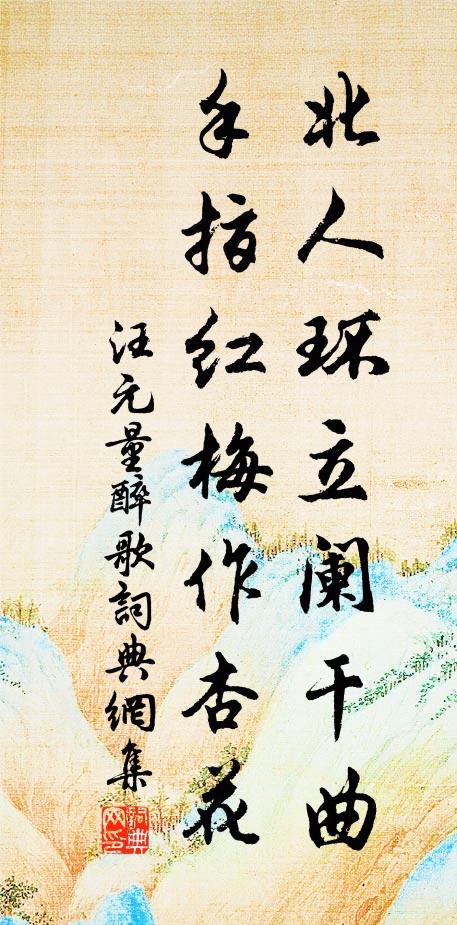 北人环立阑干曲
手指红梅作杏花
汪元量醉歌詞典網集
詞典